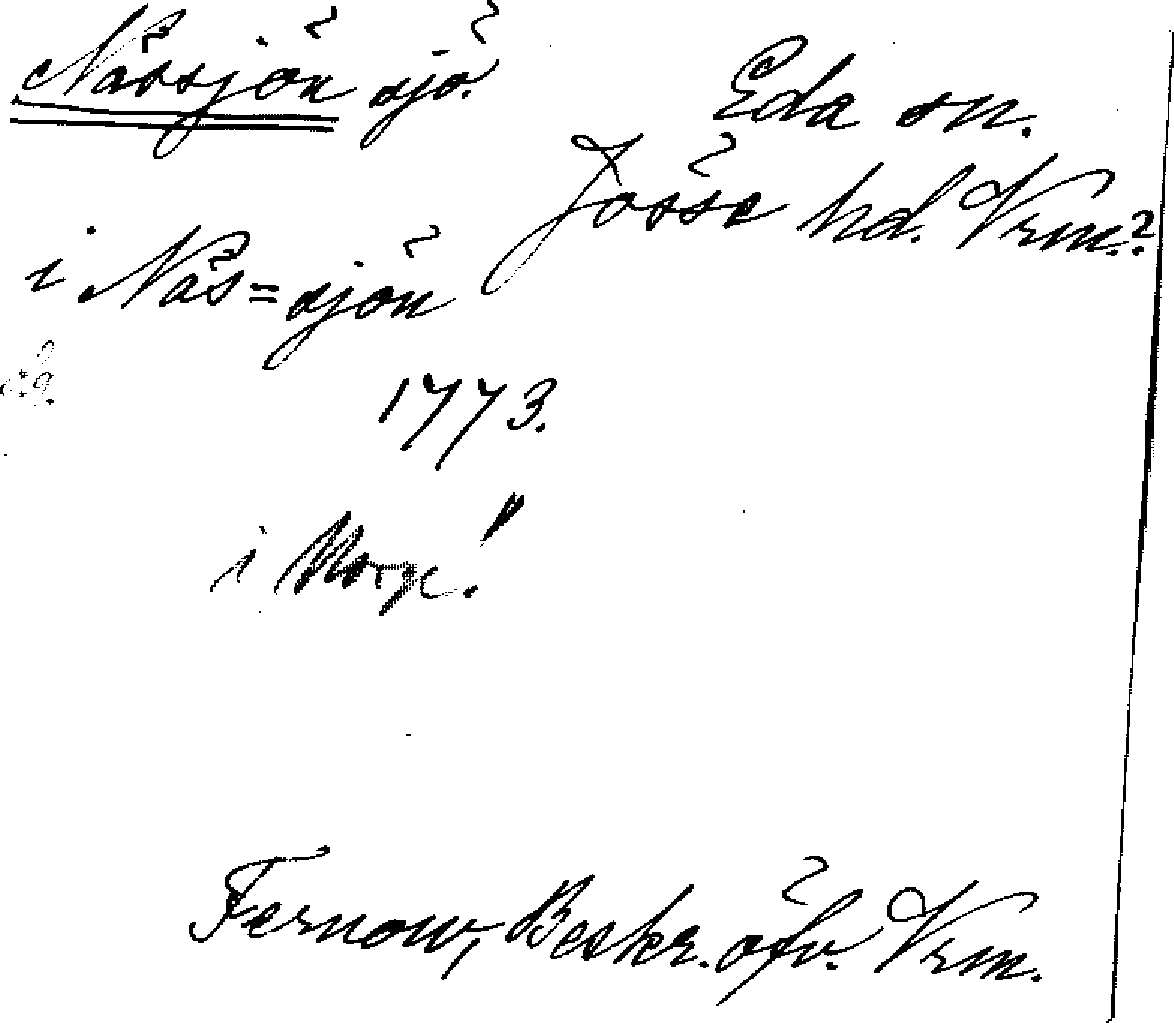 Nässjön sjö. Eda sn.
Jösse hd. Vrm.?
i Näs=sjön
1773.
i Norge!
Fernow, Beskr. öfv. Vrm.